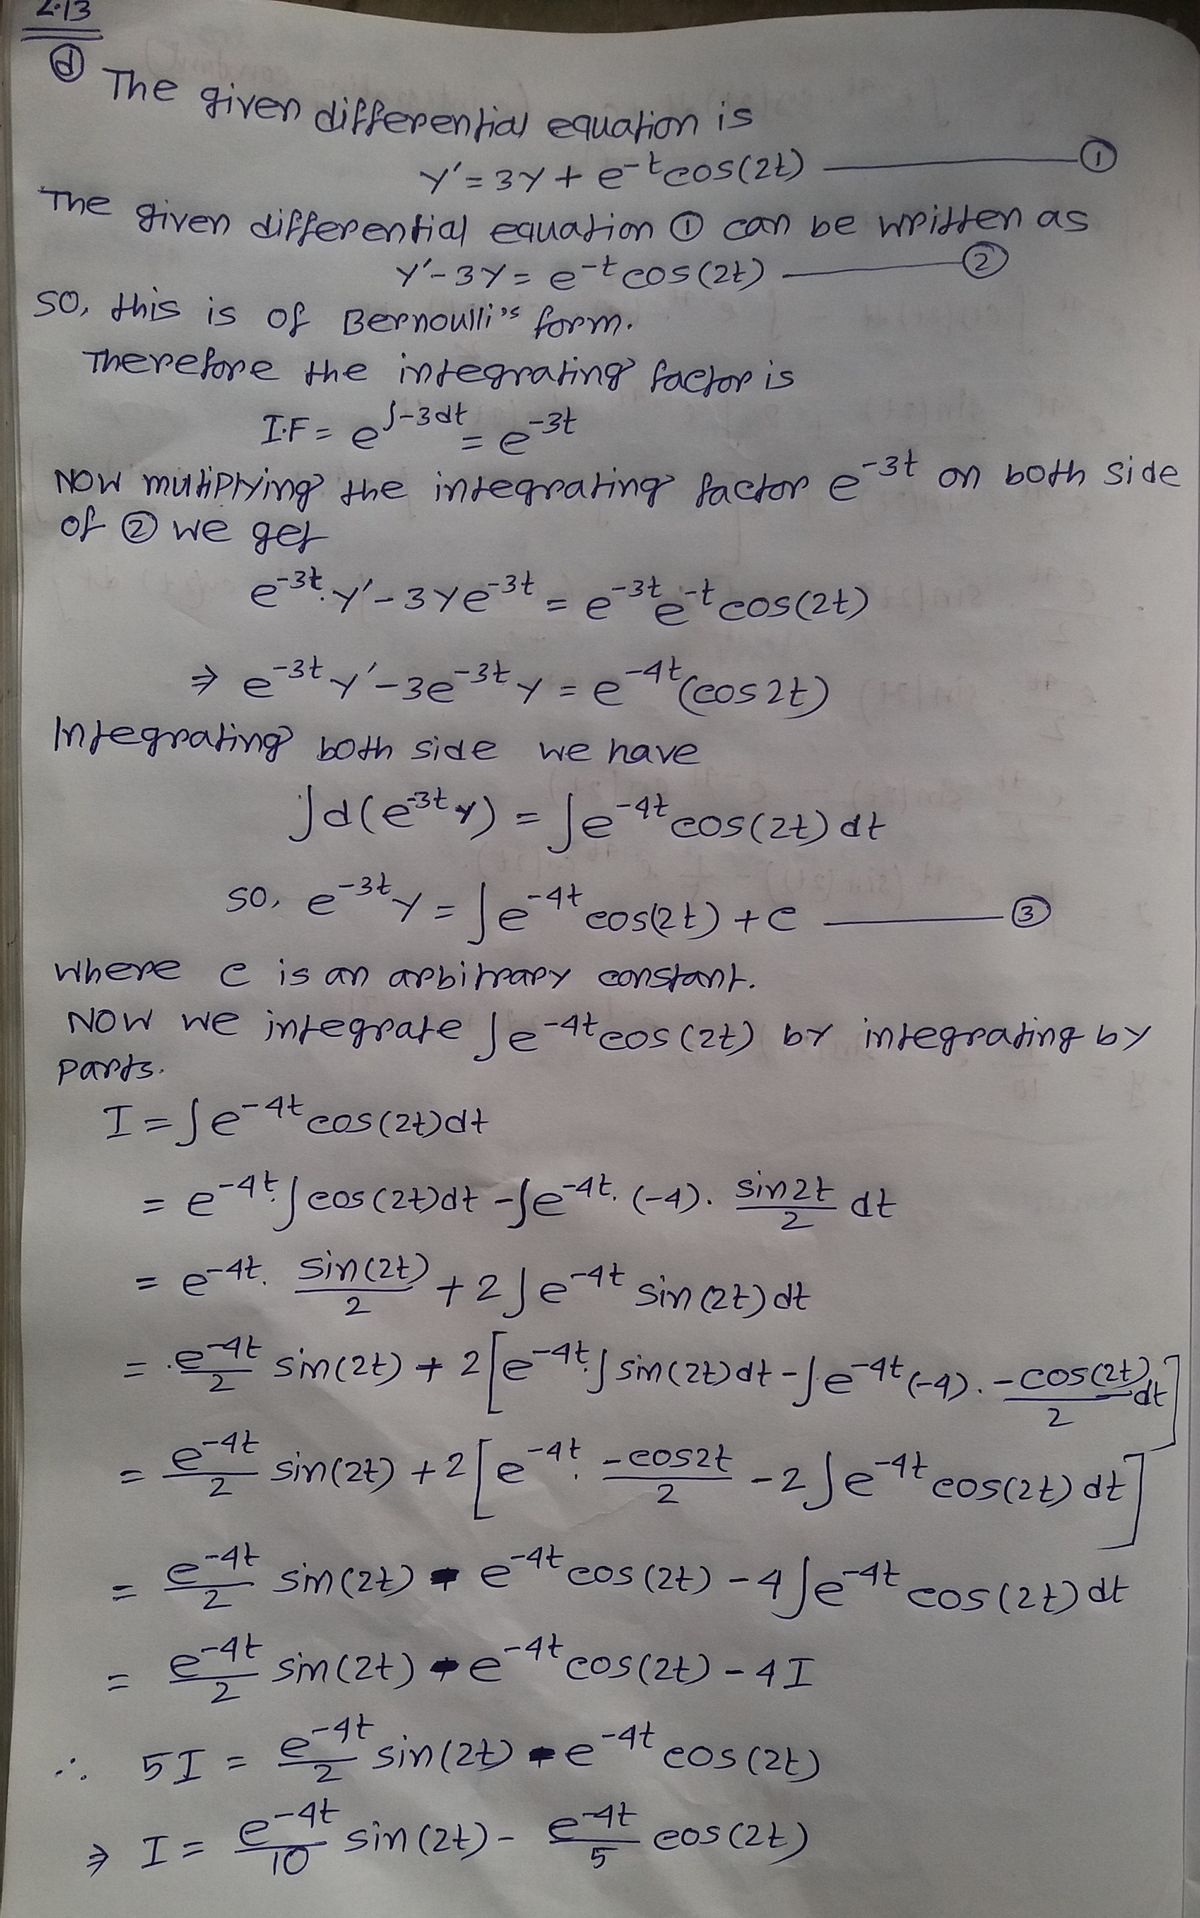 2.13
(d) The given differential equation is
y' = 3y + e^-t cos(2t) ——— (1)
The given differential equation (1) can be written as
y' - 3y = e^-t cos(2t) ——— (2)
so, this is of Bernoulli's form.
Therefore the integrating factor is
I.F = e^∫-3dt = e^-3t
Now multiplying the integrating factor e^-3t on both side
of (2) we get
e^-3t. y' - 3ye^-3t = e^-3t e^-t cos(2t)
⇒ e^-3t y' - 3e^-3t y = e^-4t (cos2t)
Integrating both side we have
∫d(e^-3t y) = ∫e^-4t cos(2t) dt
so, e^-3t y = ∫e^-4t cos(2t) + c ——— (3)
where c is an arbitrary constant.
Now we integrate ∫e^-4t cos(2t) by integrating by
parts.
I = ∫e^-4t cos(2t)dt
= e^-4t.∫cos(2t)dt - ∫e^-4t.(-4). sin2t/2 dt
= e^-4t. sin(2t)/2 + 2∫e^-4t sin(2t)dt
= e^-4t/2 sin(2t) + 2[e^-4t.∫sin(2t)dt - ∫e^-4t(-4). -cos(2t)/2 dt]
= e^-4t/2 sin(2t) + 2[e^-4t. -cos2t/2 - 2∫e^-4t cos(2t) dt]
= e^-4t/2 sin(2t) - e^-4t cos(2t) - 4∫e^-4t cos(2t) dt
= e^-4t/2 sin(2t) - e^-4t cos(2t) - 4I
∴ 5I = e^-4t/2 sin(2t) - e^-4t cos(2t)
⇒ I = e^-4t/10 sin(2t) - e^-4t/5 cos(2t)